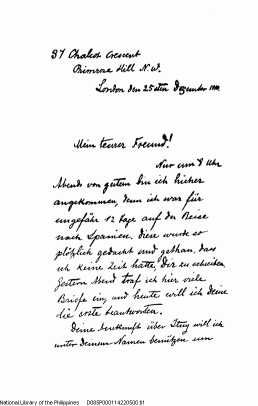 37 Chalcot Crescent
Primrose Hill N.W.
London den 25 sten Dezember
Mein teurer Freund!
Nur um 8 Uhr
Abends von gestern bin ich hieher
angekommen, denn ich war für
ungefähr 12 Tage auf der Reise
nach Spanien. Diese wurde so
plötzlich gedacht und gethan, dass
ich keine Zeit hatte, Dir zu schreiben.
Gestern Abend traf ich hier viele
Briefe ein, und heute will ich Deine
die erste beantworten.
Deine Auskunft über will ich
unter deinem Namen benützen um
National Library of the Philippines D00SP00011422050081